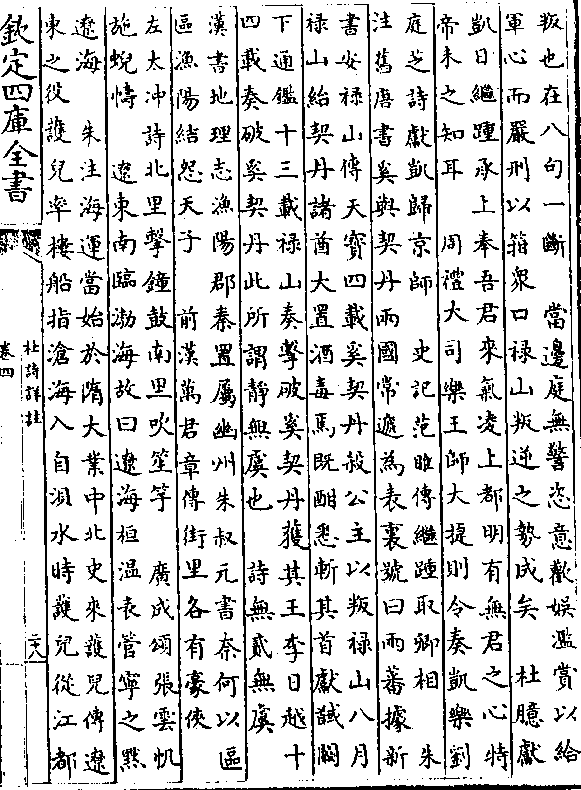 叛也在八句一斷　當邊庭無警恣意歡娯濫賞以給
軍心而嚴刑以箝衆口禄山叛逆之勢成矣　杜臆獻
凱日繼踵承上奉吾君來氣凌上都明有無君之心特
帝未之知耳　周禮大司樂王師大捷則令奏凱樂劉
庭芝詩獻凱歸京師　史記范雎傳繼踵取卿相　朱
注舊唐書奚與契丹兩國常遞為表裏號曰兩蕃據新
書安禄山傳天寶四載奚契丹殺公主以叛禄山八月
禄山紿契丹諸酋大置酒毒焉既酣悉斬其首獻馘闕
下通鑑十三載禄山奏擊破奚契丹獲其王李日越十
四載奏破奚契丹此所謂静無虞也　詩無貳無虞
漢書地理志漁陽郡秦置屬幽州朱叔元書奈何以區
區漁陽結怨天子　前漢萬君章傳街里各有豪俠
左太冲詩北里擊鐘鼓南里吹笙竽　廣成頌張雲帆
施蜺幬　遼東南臨渤海故曰遼海桓温表管寧之黙
遼海　朱注海運當始於隋大業中北史來護兒傳遼
東之役護兒率樓船指滄海入自浿水時護兒從江都
欽定四庫全書
杜詩詳註
卷四
二十八